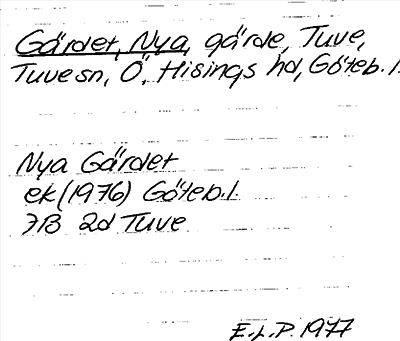 Gärdet, Nya, gärde, Tuve,
Tuve sn, Ö. Hisings hd, Göteb. l.
Nya Gärdet
ek (1976) Göteb. l.
7B 2d Tuve
E.L.P. 1977